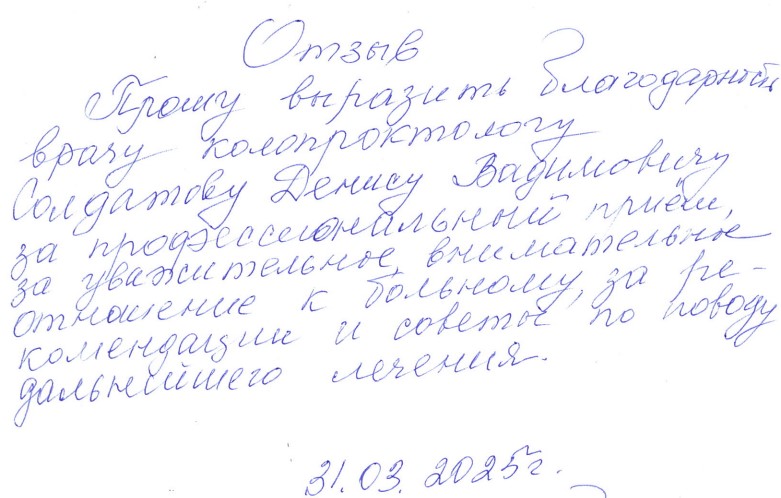 Отзыв
Прошу выразить благодарность
врачу колопроктологу
Солдатову Денису Вадимовичу
за профессиональный приём,
за уважительное внимательное
отношение к больному, за ре-
комендации и советы по поводу
дальнейшего лечения.
31.03.2025г.